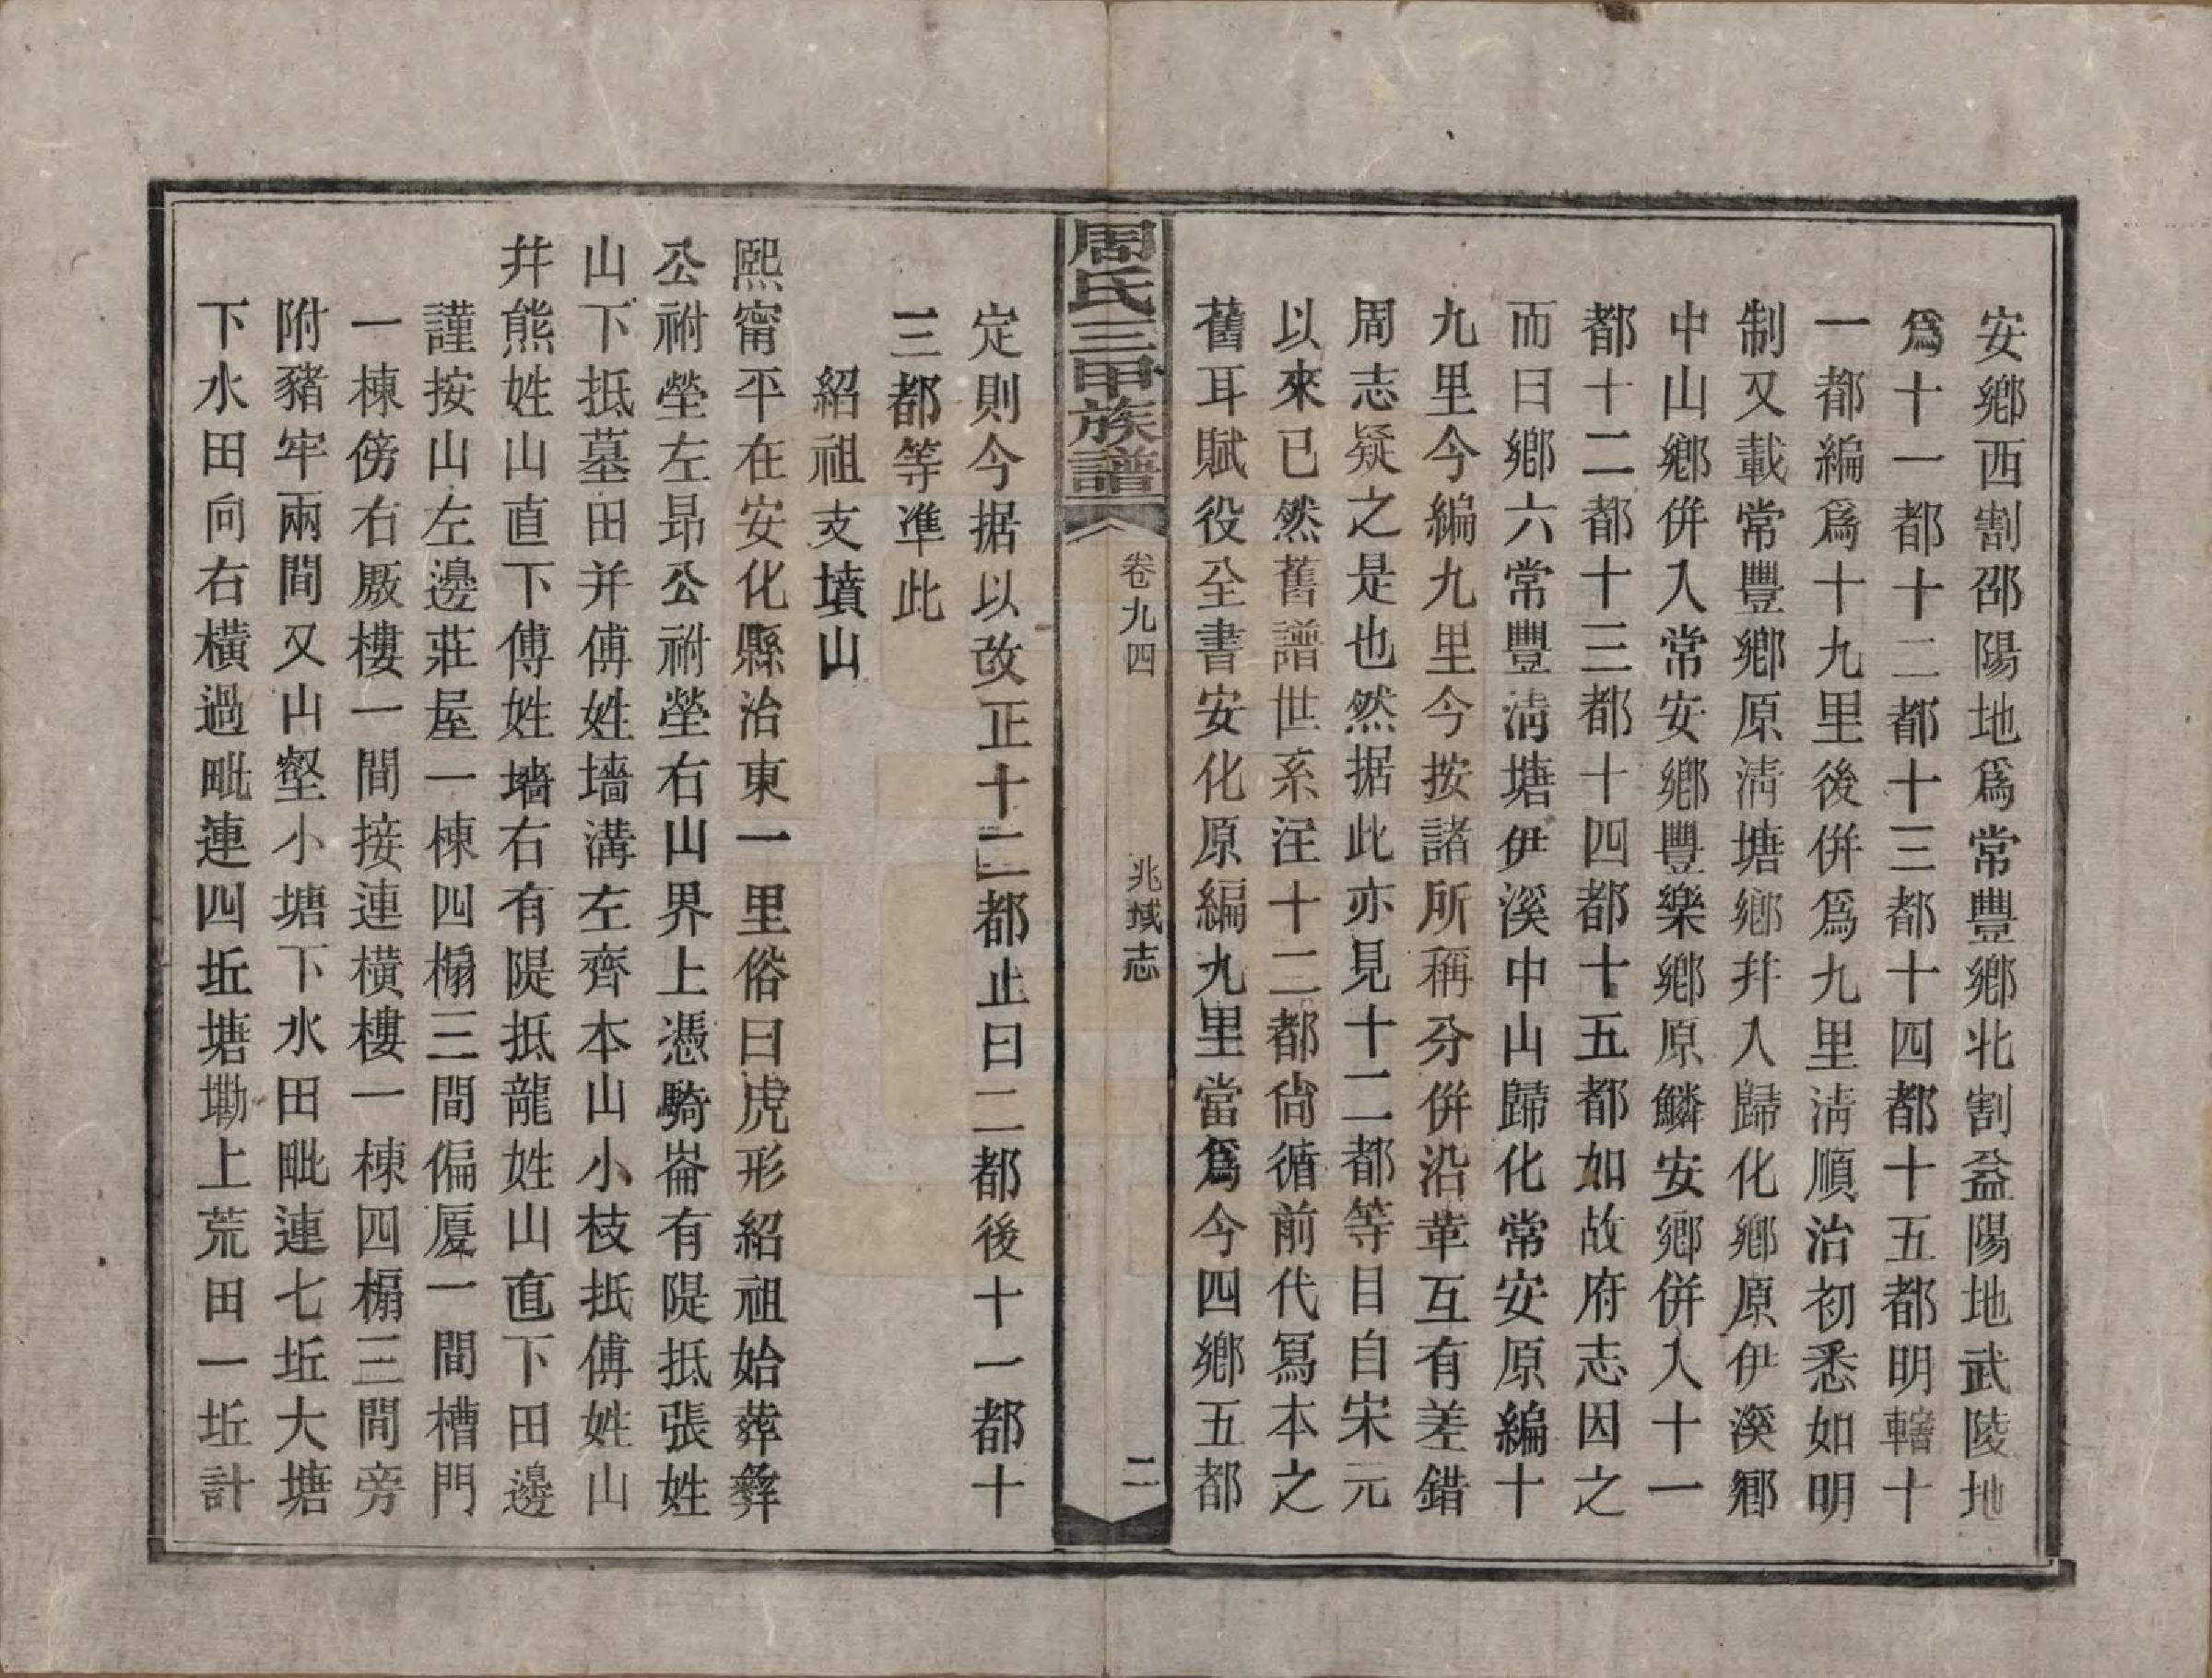 安鄉西割邵陽地爲常豐鄉北割益陽地武陵地
爲十一都十二都十三都十四都十五都明轄十
一都編爲十九里後併爲九里淸順治初悉如明
制又載常豐鄉原淸塘鄉井入歸化鄉原伊溪鄉
中山鄉併入常安鄉豐樂鄉原鱗安鄉併入十一
都十二都十三都十四都十五都如故府志因之
而曰鄉六常豐淸塘伊溪中山歸化常安原編十
九里今編九里今按諸所稱分併沿革互有差錯
周志疑之是也然据此亦見十二都等目自宋元
以來已然舊譜世系注十二都尙循前代寫本之
舊耳賦役全書安化原編九里當爲今四鄉五都
周氏三甲族譜
卷九四
兆域志
二
定則今据以改正十二都止曰二都後十一都十
三都等準此
紹祖支墳山
熙甯平在安化縣治東一里俗曰虎形紹祖始葬彝
公祔塋左昂公祔塋右山界上憑騎崙有隄抵張姓
山下抵墓田并傅姓墻溝左齊本山小枝抵傅姓山
井熊姓山直下傅姓墻右有隄抵龍姓山直下田邊
謹按山左邊莊屋一棟四榻三間偏厦一間槽門
一棟傍右厫樓一間接連橫樓一棟四榻三間旁
附豬牢兩間又山壑小塘下水田毗連七坵大塘
下水田向右橫過毗連四坵塘墈上荒田一坵計